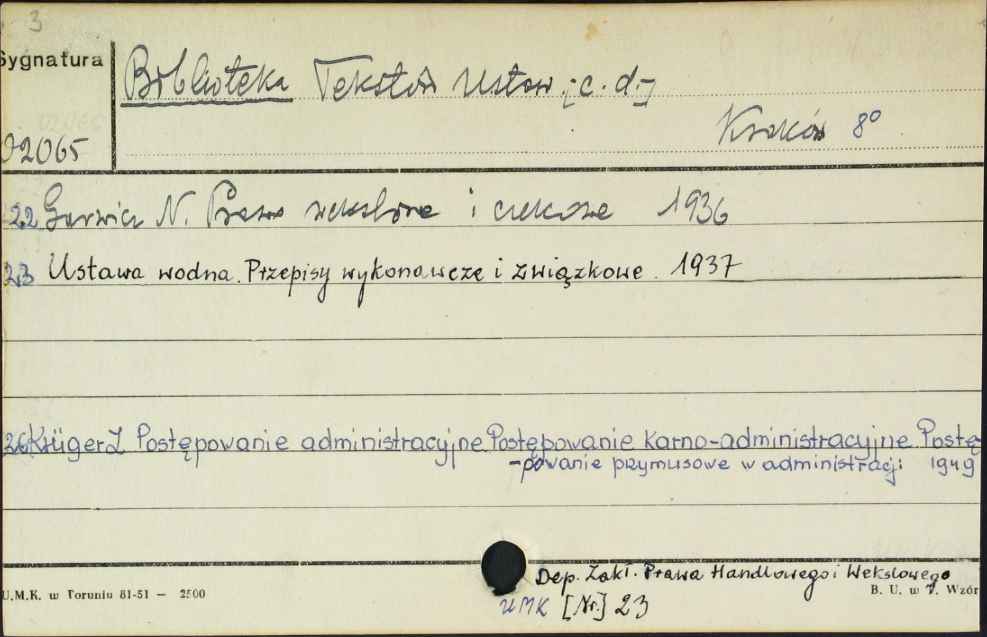 3
Sygnatura
Biblioteka Tekstów Ustaw [c. d.]
Kraków 8°
02065
22 Gerwicz N. Prawo wekslowe i czekowe 1936
23 Ustawa wodna. Przepisy wykonawcze i związkowe. 1937
26 Krüger J Postępowanie administracyjne Postępowanie karno-administracyjne Postę
-powanie przymusowe w administracji 1949
Dep. Zakł. Prawa Handlowego i Wekslowego
U.M.K. w Toruniu 81-51 — 2500
B. U. w T. Wzór
UMK [Nr.] 23